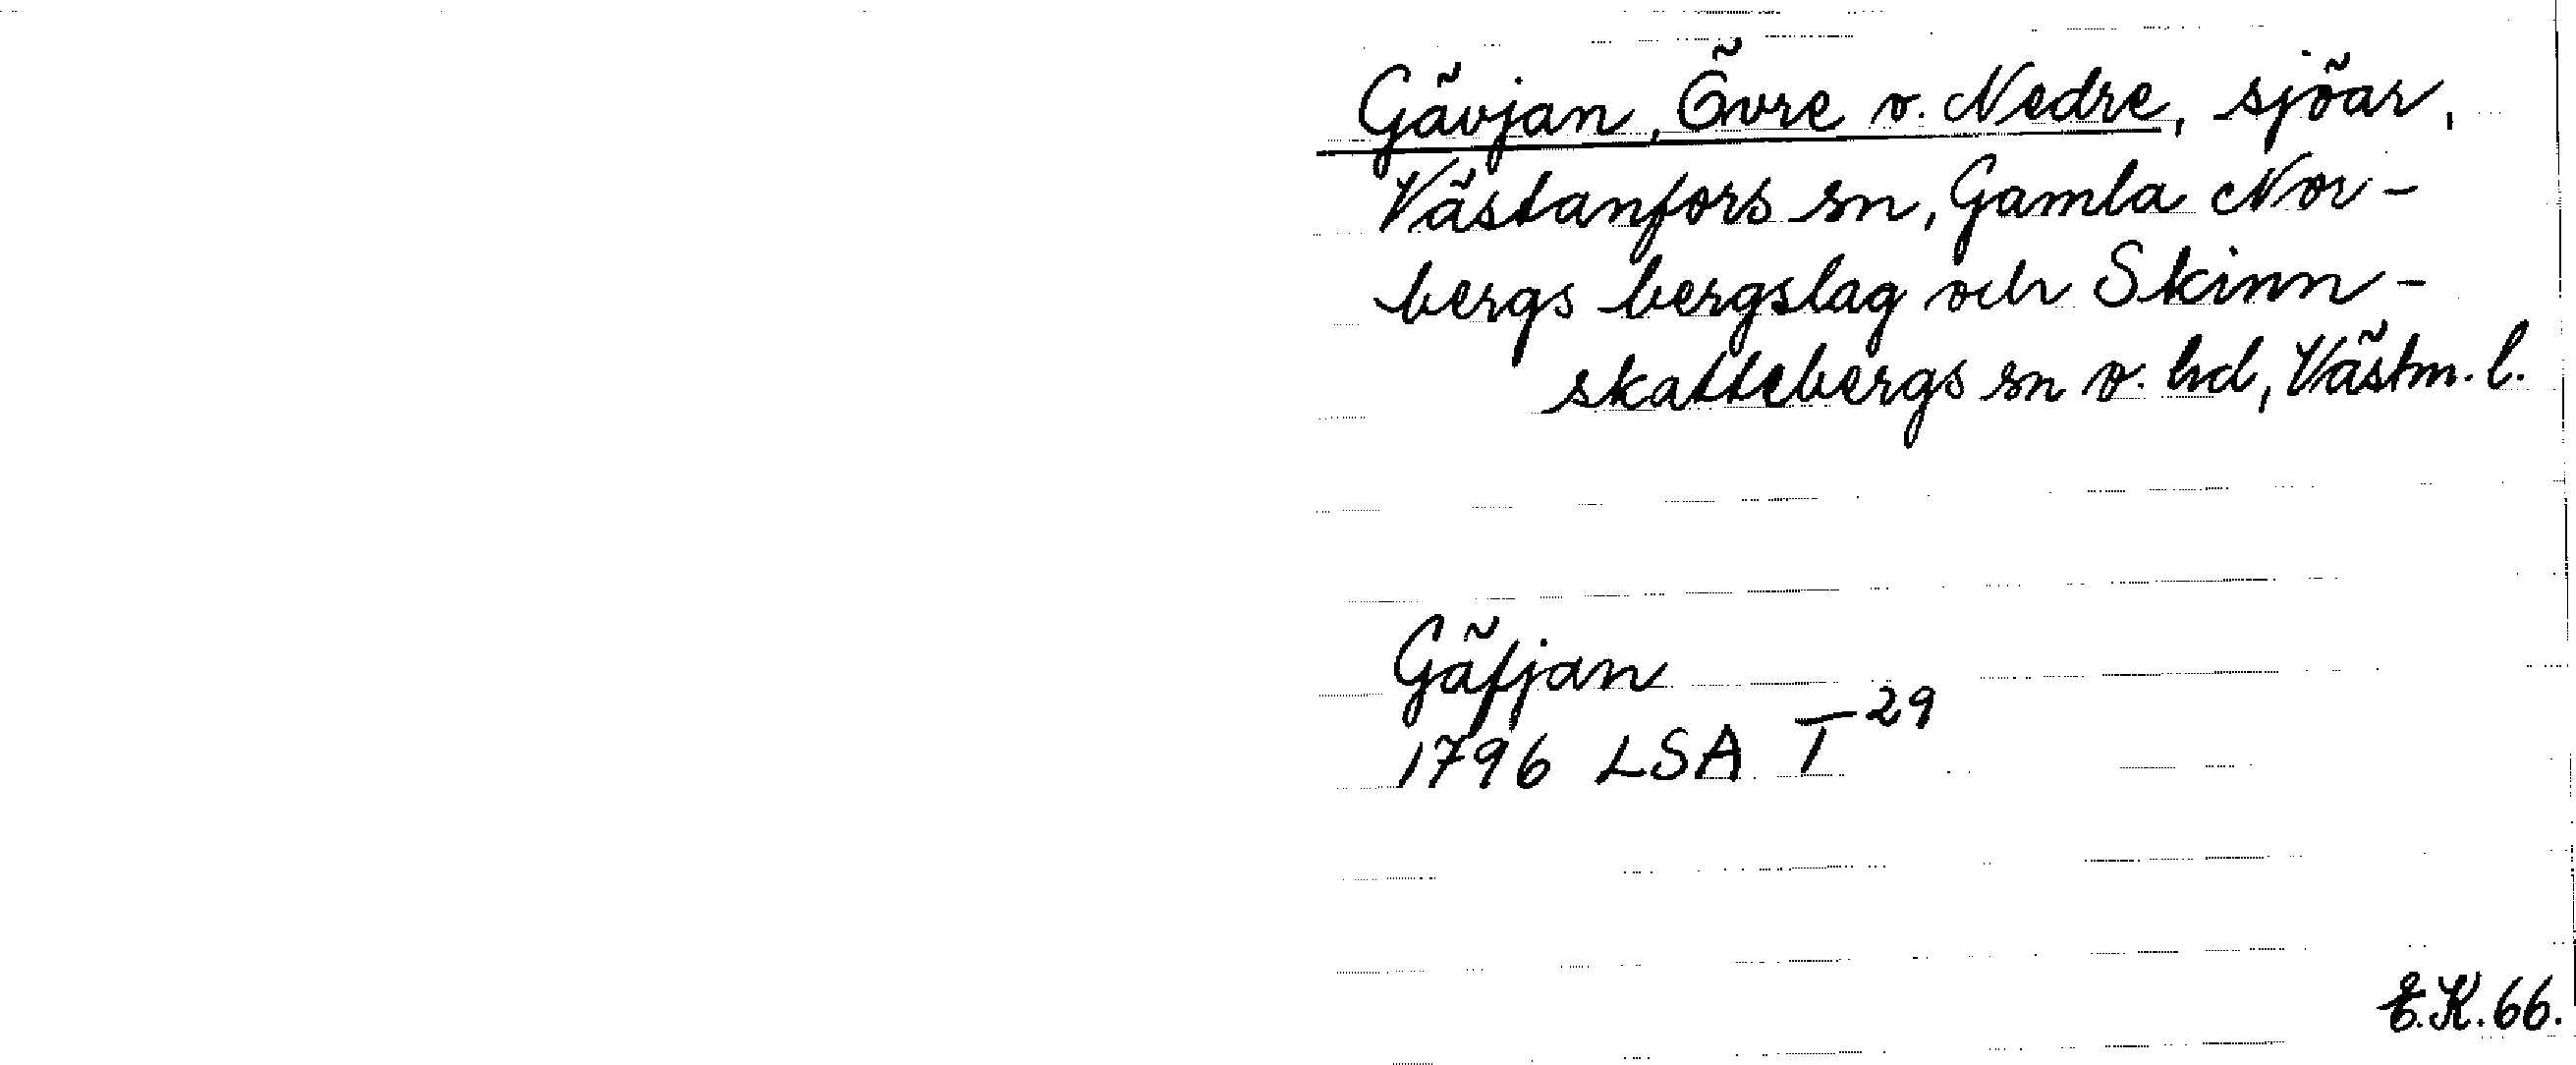 Gävjan, Övre o. Nedre, sjöar,
Västanfors sn, Gamla Nor-
bergs bergslag och Skinn-
skattebergs sn o. hd, Västm. l.
Gäfjan
1796 LSA T 29
E.K. 66.